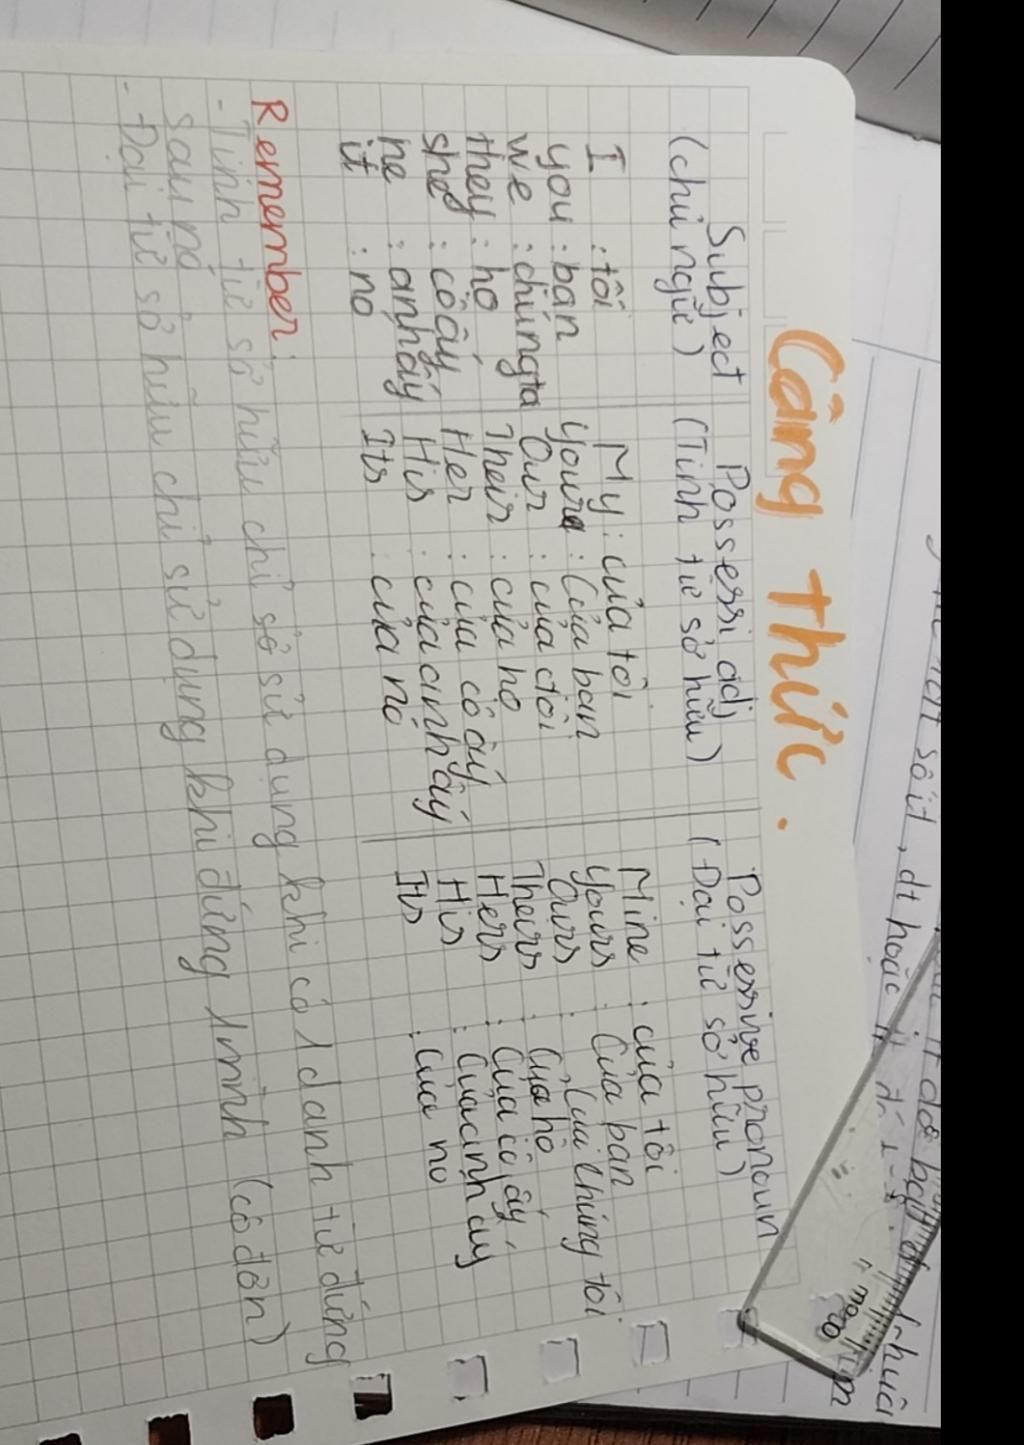 Công thức.
Subject
(chủ ngữ)
Possessi adj
(Tính từ sở hữu)
Possessive pronoun
(Đại từ sở hữu)
I : tôi
you : bạn
we : chúng ta
they : họ
she : cô ấy
he : anh ấy
it : nó
My : của tôi
your : của bạn
Our : của ctôi
Their : của họ
Her : của cô ấy
His : của anh ấy
Its : của nó
Mine : của tôi
Yours : của bạn
Ours : của chúng tôi
Theirs : của họ
Hers : của cô ấy
His : của anh ấy
Its : của nó
Remember:
- Tính từ sở hữu chỉ sở sử dụng khi có 1 danh từ đứng
sau nó
- Đại từ sở hữu chỉ sử dụng khi đứng 1 mình (cô đơn)
số ít, dt hoặc